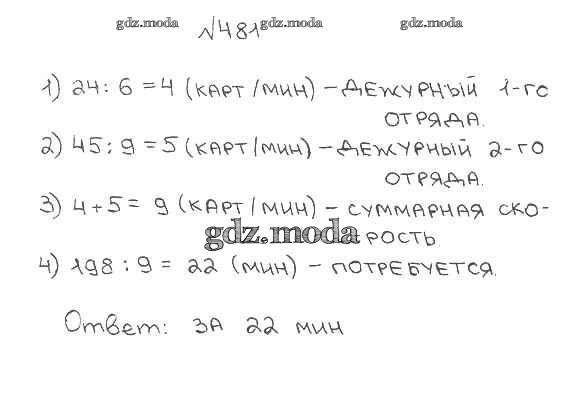 gdz.moda gdz.moda gdz.moda
№481
1) 24 : 6 = 4 (КАРТ/МИН) – ДЕЖУРНЫЙ 1-ГО
ОТРЯДА.
2) 45 : 9 = 5 (КАРТ/МИН) – ДЕЖУРНЫЙ 2-ГО
ОТРЯДА.
3) 4 + 5 = 9 (КАРТ/МИН) – СУММАРНАЯ СКО-
gdz.moda
РОСТЬ
4) 198 : 9 = 22 (МИН) – ПОТРЕБУЕТСЯ.
Ответ: ЗА 22 МИН